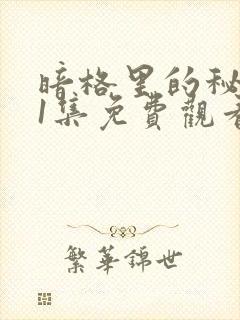 暗格里的秘
1集免費觀看
繁華錦世